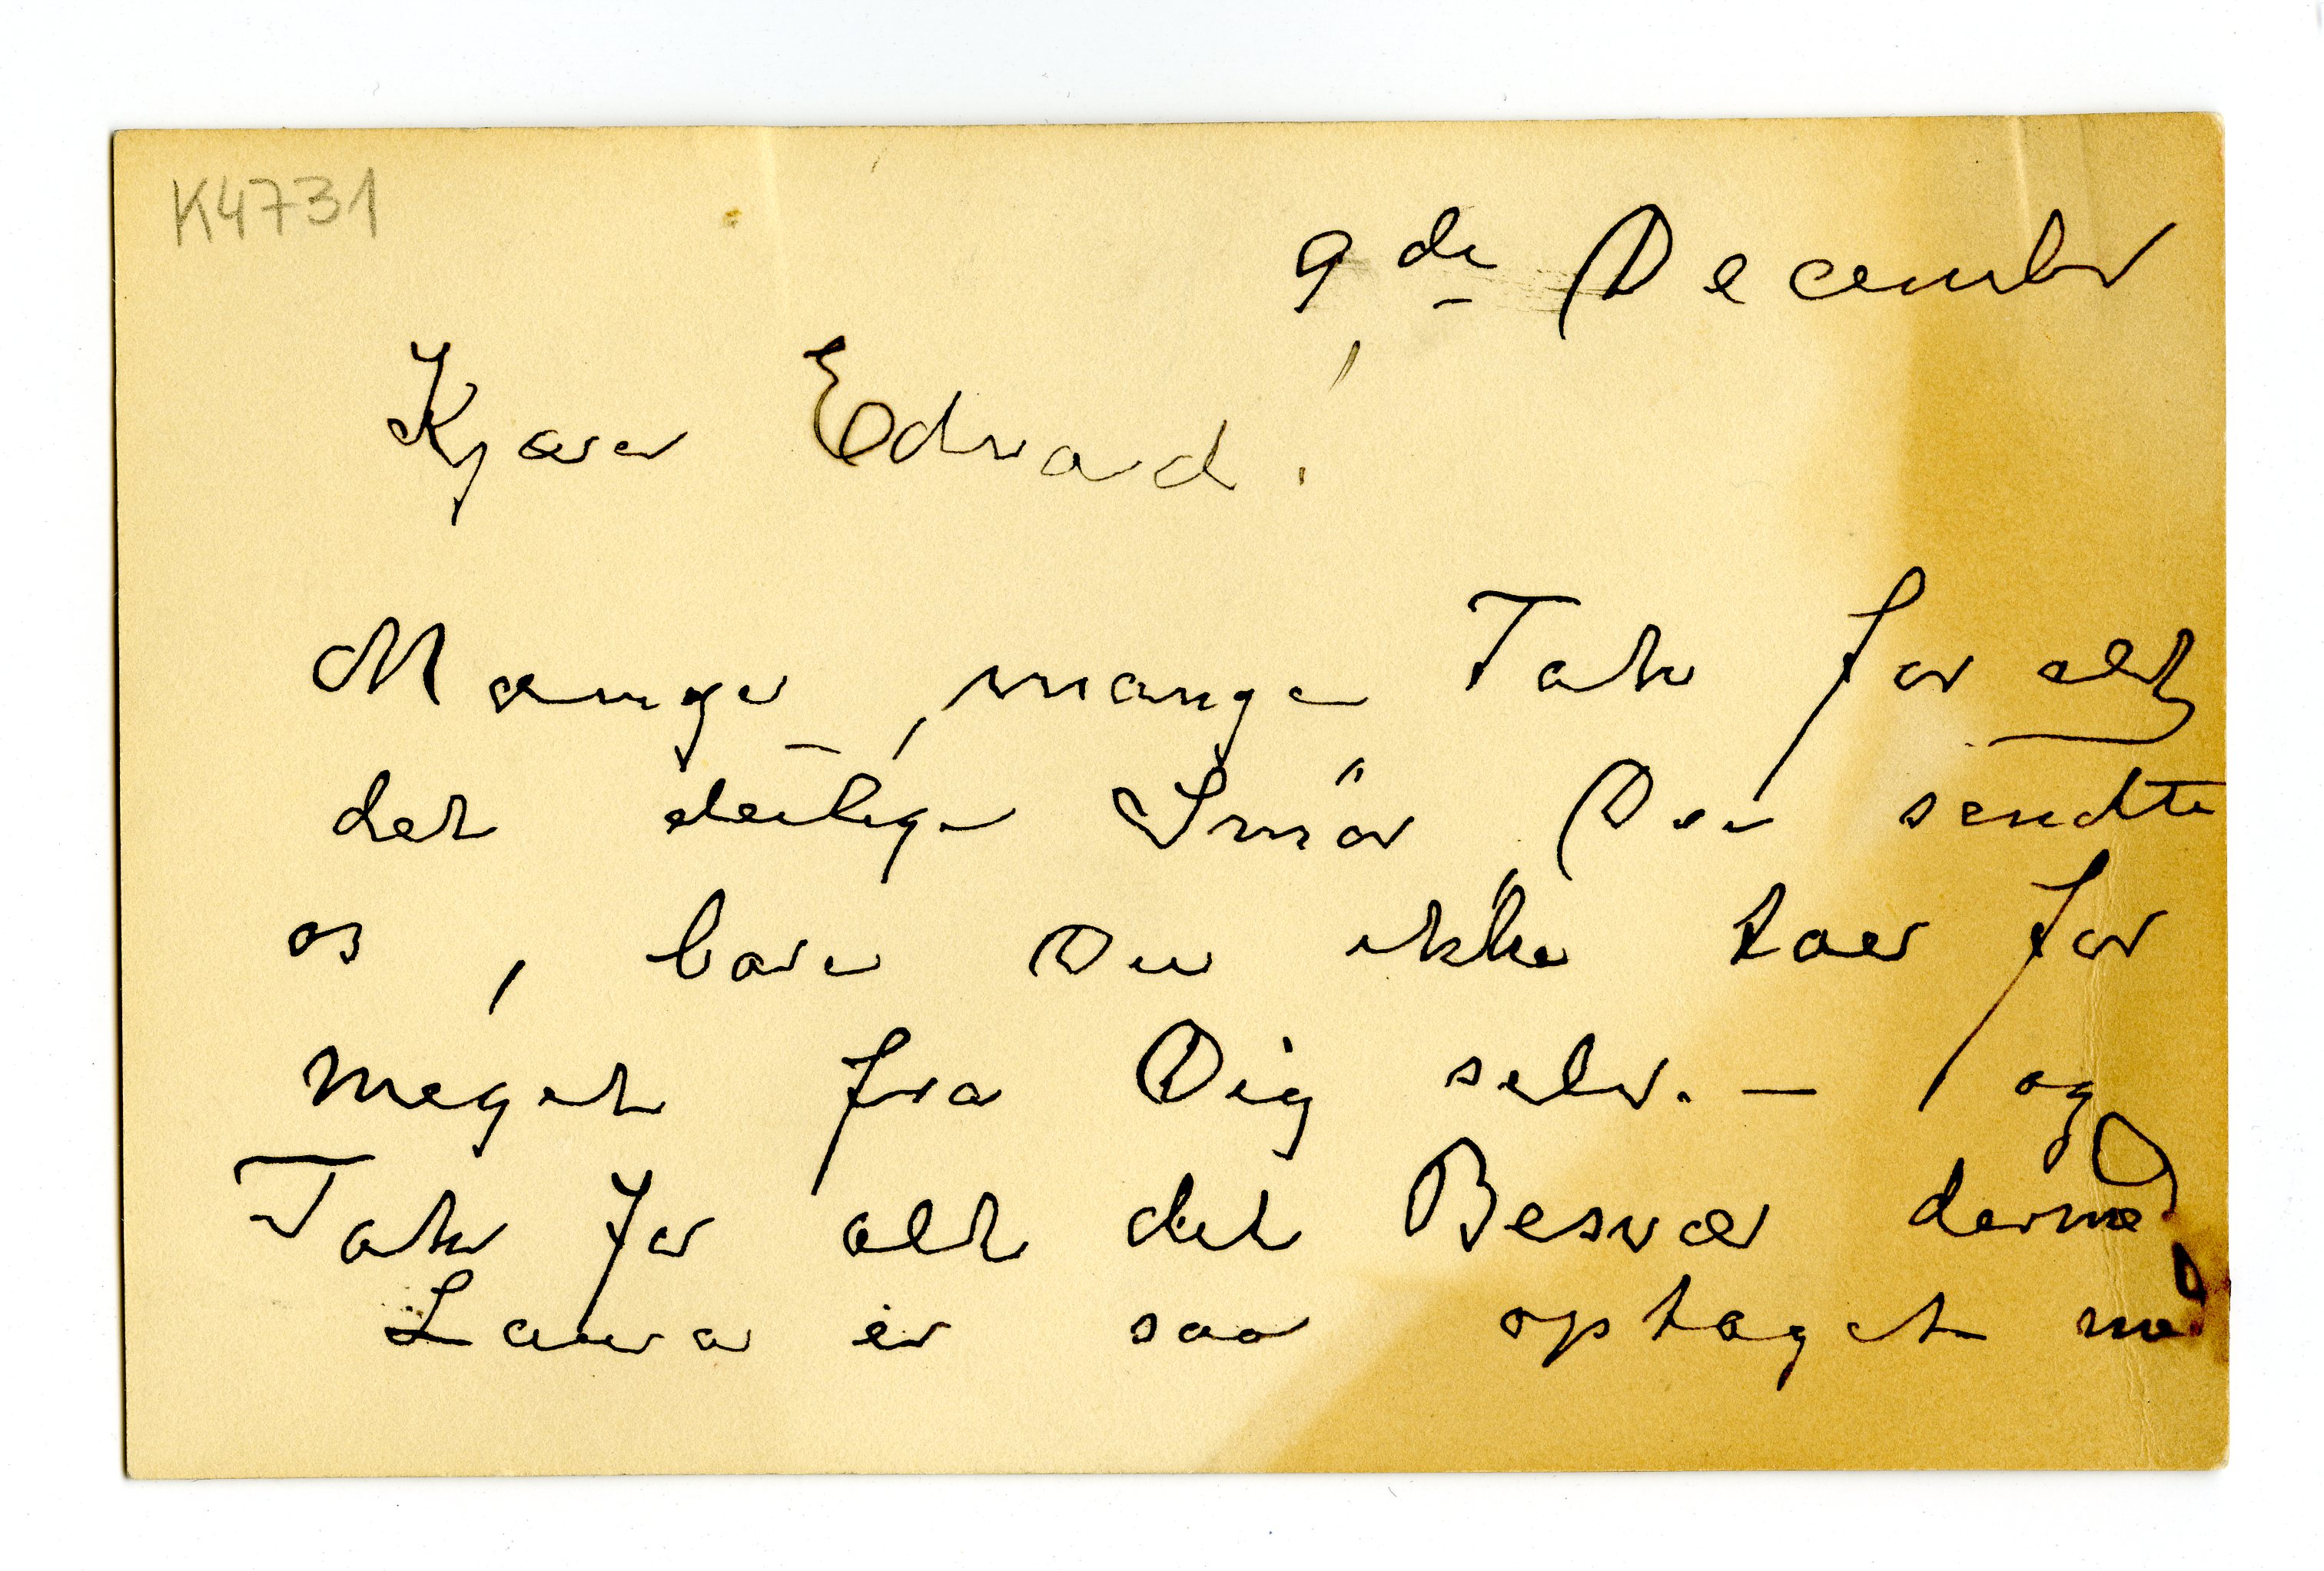 K4731
9de December
Kjære Edvard!
Mange, mange Tak for alt
det deilige Smör Du sendte
os, bare Du ikke taer for
meget fra Dig selv. – og
Tak for alt det Besvær dermed
Laura er saa optaget med